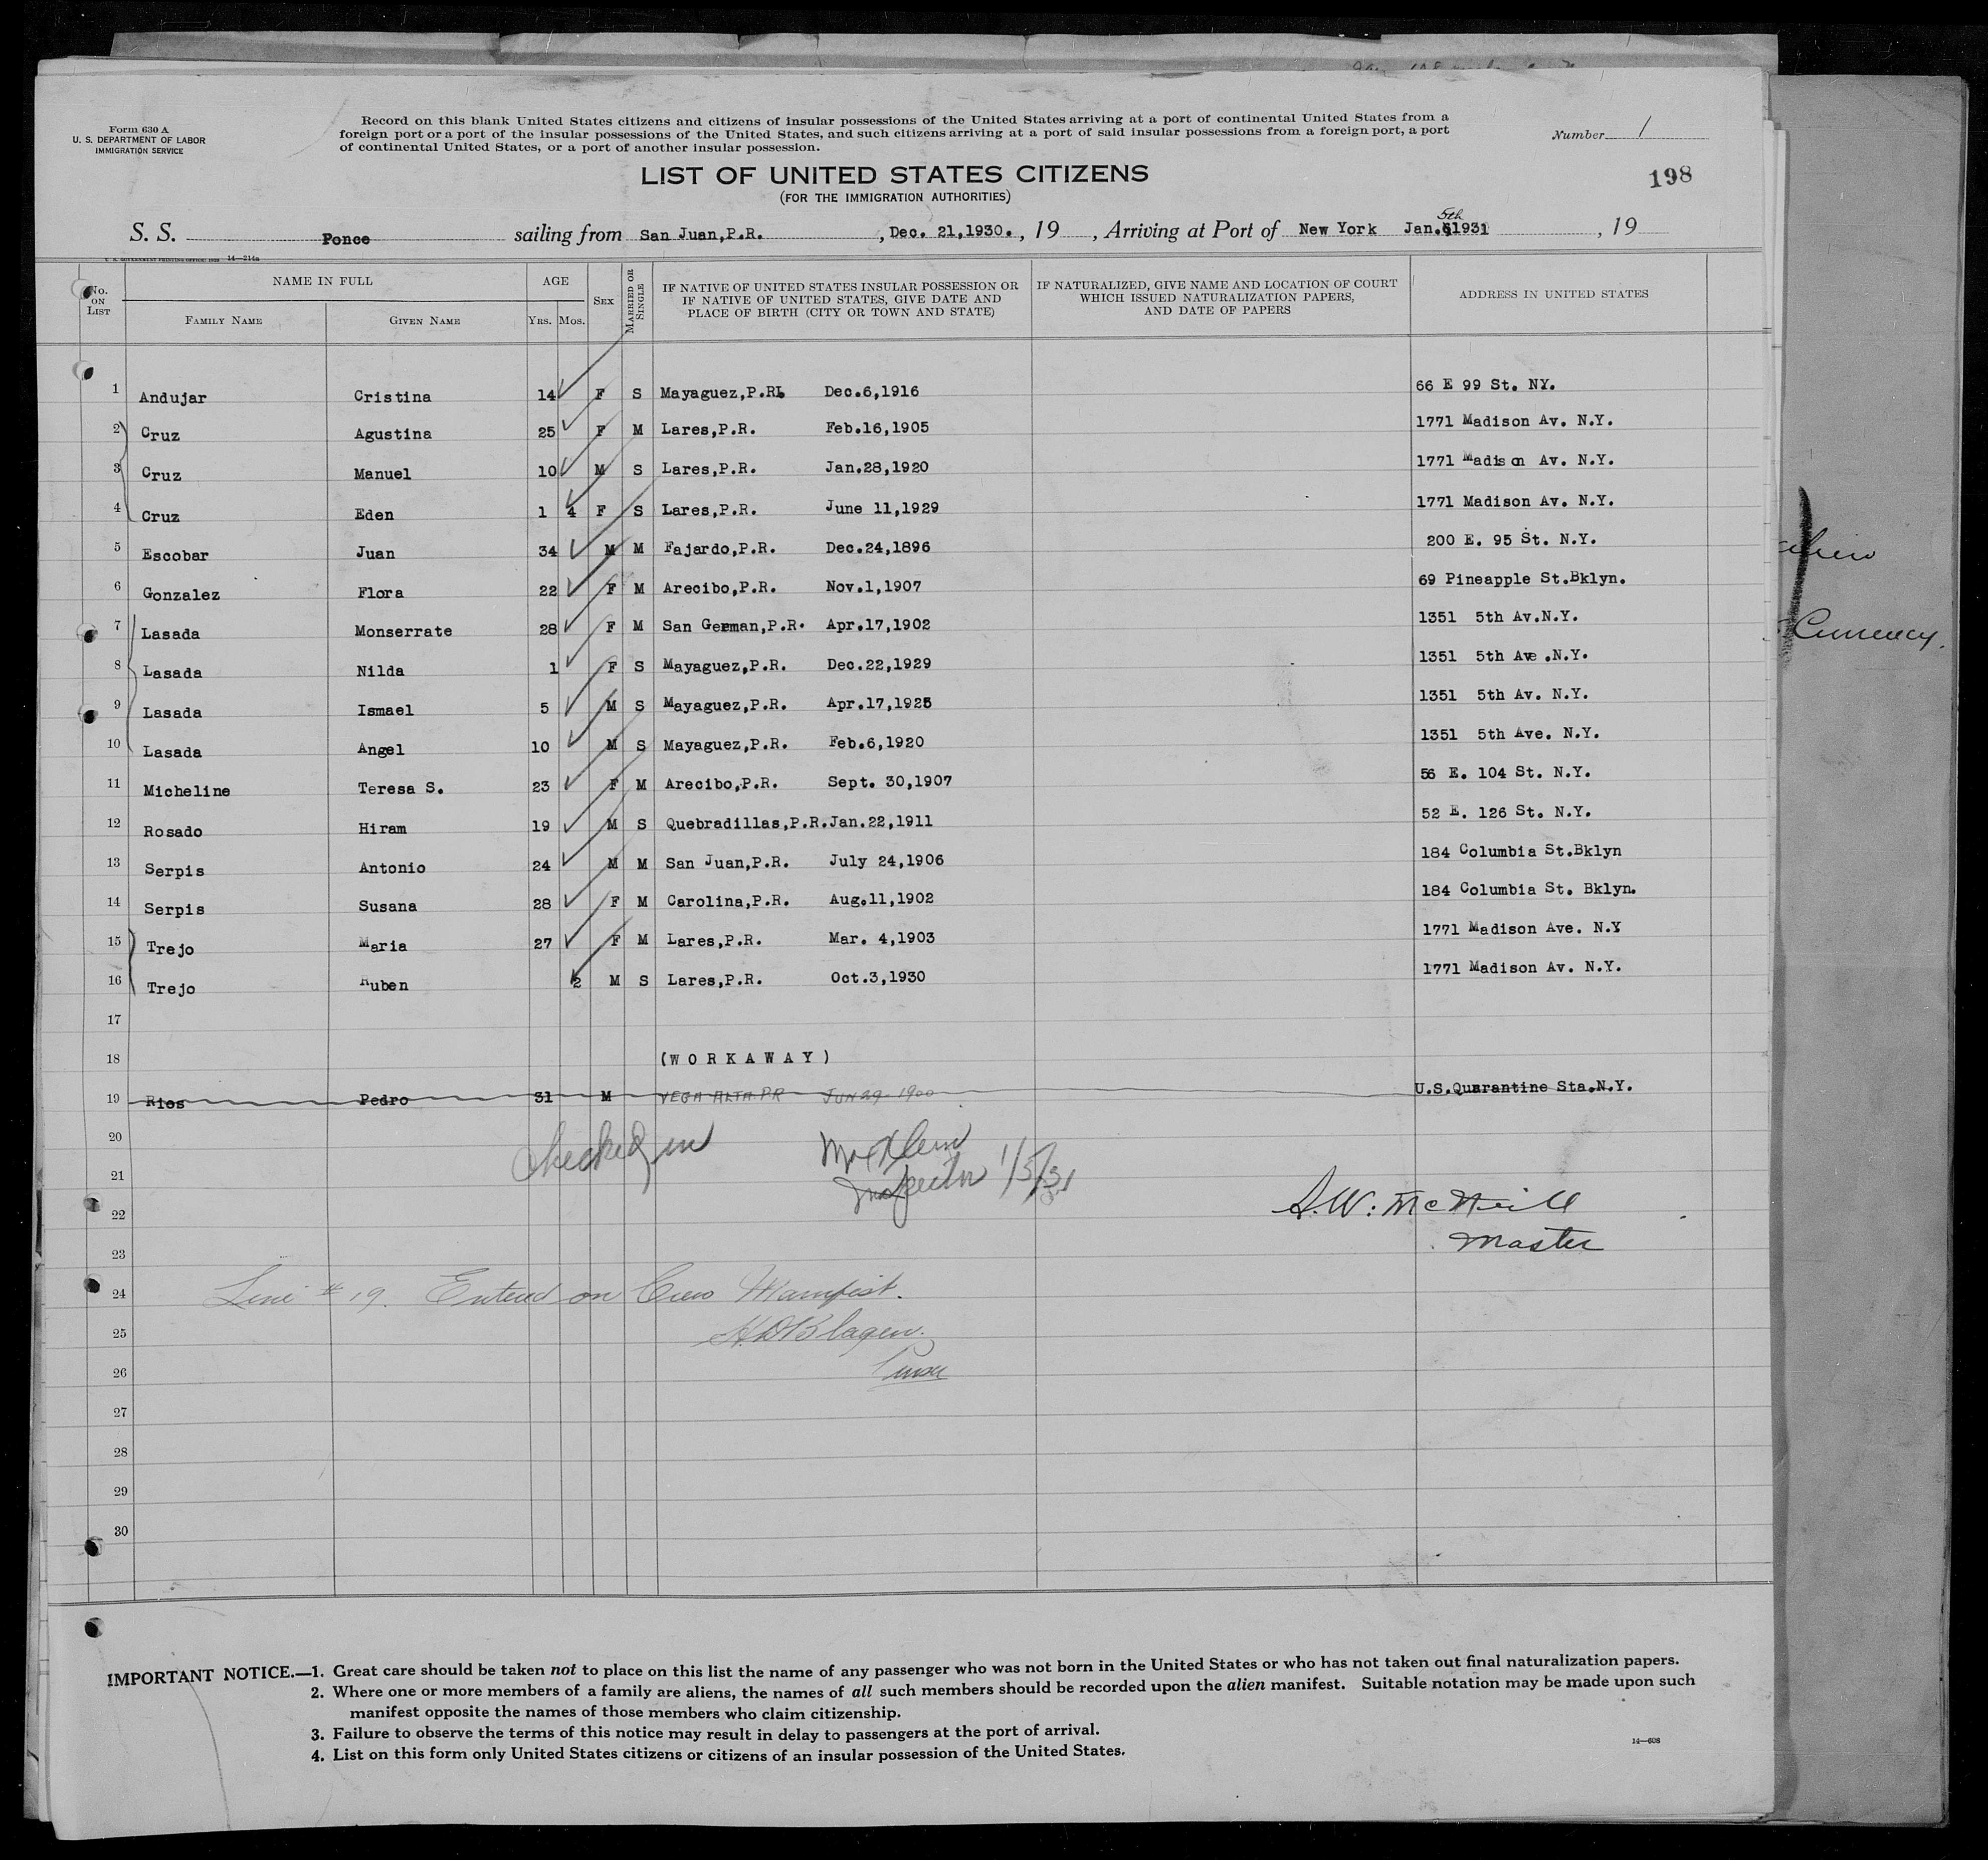 Form 630 A
U. S. DEPARTMENT OF LABOR
IMMIGRATION SERVICE
Record on this blank United States citizens and citizens of insular possessions of the United States arriving at a port of continental United States from a
foreign port or a port of the insular possessions of the United States, and such citizens arriving at a port of said insular possessions from a foreign port, a port
of continental United States, or a port of another insular possession.
Number 1
LIST OF UNITED STATES CITIZENS
(FOR THE IMMIGRATION AUTHORITIES)
198
S. S. Ponce sailing from San Juan,P.R. , Dec. 21,1930. , 19 , Arriving at Port of New York Jan. 5th 1931 , 19
U. S. GOVERNMENT PRINTING OFFICE: 14—214a
No. ON LIST
NAME IN FULL
FAMILY NAME
GIVEN NAME
AGE
YRS.
MOS.
SEX
MARRIED OR SINGLE
IF NATIVE OF UNITED STATES INSULAR POSSESSION OR
IF NATIVE OF UNITED STATES, GIVE DATE AND
PLACE OF BIRTH (CITY OR TOWN AND STATE)
IF NATURALIZED, GIVE NAME AND LOCATION OF COURT
WHICH ISSUED NATURALIZATION PAPERS,
AND DATE OF PAPERS
ADDRESS IN UNITED STATES
1 Andujar Cristina 14 F S Mayaguez,P.R. Dec.6,1916 66 E 99 St. NY.
2 Cruz Agustina 25 F M Lares,P.R. Feb.16,1905 1771 Madison Av. N.Y.
3 Cruz Manuel 10 M S Lares,P.R. Jan.28,1920 1771 Madison Av. N.Y.
4 Cruz Eden 1 4 F S Lares,P.R. June 11,1929 1771 Madison Av. N.Y.
5 Escobar Juan 34 M M Fajardo,P.R. Dec.24,1896 200 E. 95 St. N.Y.
6 Gonzalez Flora 22 F M Arecibo,P.R. Nov.1,1907 69 Pineapple St.Bklyn.
7 Lasada Monserrate 28 F M San German,P.R. Apr.17,1902 1351 5th Av.N.Y.
8 Lasada Nilda 1 F S Mayaguez,P.R. Dec.22,1929 1351 5th Ave .N.Y.
9 Lasada Ismael 5 M S Mayaguez,P.R. Apr.17,1925 1351 5th Av. N.Y.
10 Lasada Angel 10 M S Mayaguez,P.R. Feb.6,1920 1351 5th Ave. N.Y.
11 Micheline Teresa S. 23 F M Arecibo,P.R. Sept. 30,1907 56 E. 104 St. N.Y.
12 Rosado Hiram 19 M S Quebradillas,P.R.Jan.22,1911 52 E. 126 St. N.Y.
13 Serpis Antonio 24 M M San Juan,P.R. July 24,1906 184 Columbia St.Bklyn
14 Serpis Susana 28 F M Carolina,P.R. Aug.11,1902 184 Columbia St. Bklyn.
15 Trejo Maria 27 F M Lares,P.R. Mar. 4,1903 1771 Madison Ave. N.Y
16 Trejo Ruben 2 M S Lares,P.R. Oct.3,1930 1771 Madison Av. N.Y.
17
18 (W O R K A W A Y)
19 Rios Pedro 31 M VEGA ALTA PR JUN 29-1900 U.S.Quarantine Sta.N.Y.
20
Checked in
21 Inspector 1/5/31
22 A. W. McNeill
23 Master
24 Line # 19. Entered on Crew Manifest.
25
26 Purser
27
28
29
30
Currency.
IMPORTANT NOTICE.—1. Great care should be taken not to place on this list the name of any passenger who was not born in the United States or who has not taken out final naturalization papers.
2. Where one or more members of a family are aliens, the names of all such members should be recorded upon the alien manifest. Suitable notation may be made upon such
manifest opposite the names of those members who claim citizenship.
3. Failure to observe the terms of this notice may result in delay to passengers at the port of arrival.
4. List on this form only United States citizens or citizens of an insular possession of the United States.
14—608